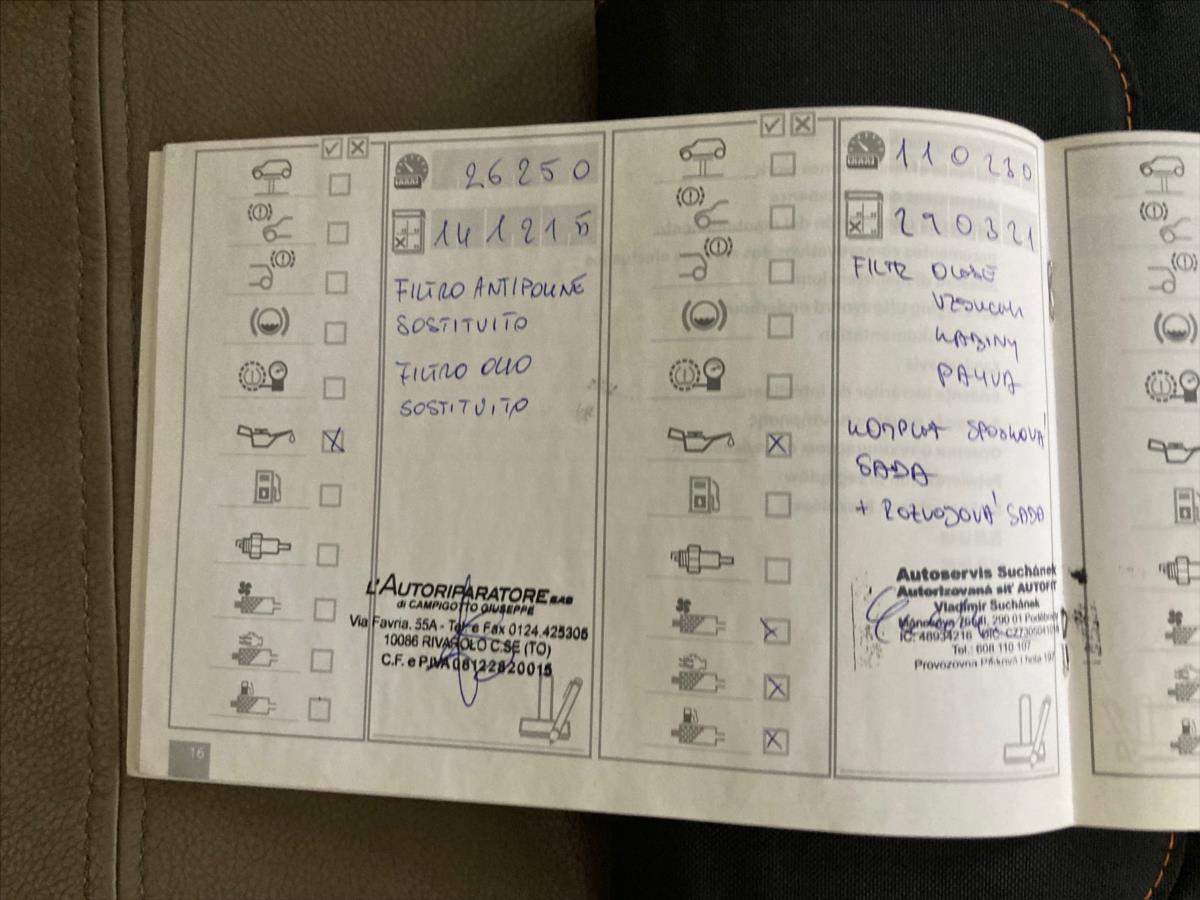 26250
141215
FILTRO ANTIPOLINE
SOSTITUITO
FILTRO OLIO
SOSTITUITO
L'AUTORIPARATORE SAS
di CAMPIGOTTO GIUSEPPE
Via Favria, 55A - Tel e Fax 0124.425305
10086 RIVAROLO C.SE (TO)
C.F. e P.IVA 08122820015
16
110230
290321
FILTR OLEJE
VZDUCHU
KABINY
PALIVA
KOMPLET SPOJKOVÁ
SADA
+ ROZVODOVÁ SADA
Autoservis Suchánek
Autorizovaná síť AUTOFIT
Vladimír Suchánek
290 01 Poděbrady
IČ: 48934216
Tel.: 608 110 107
Provozovna